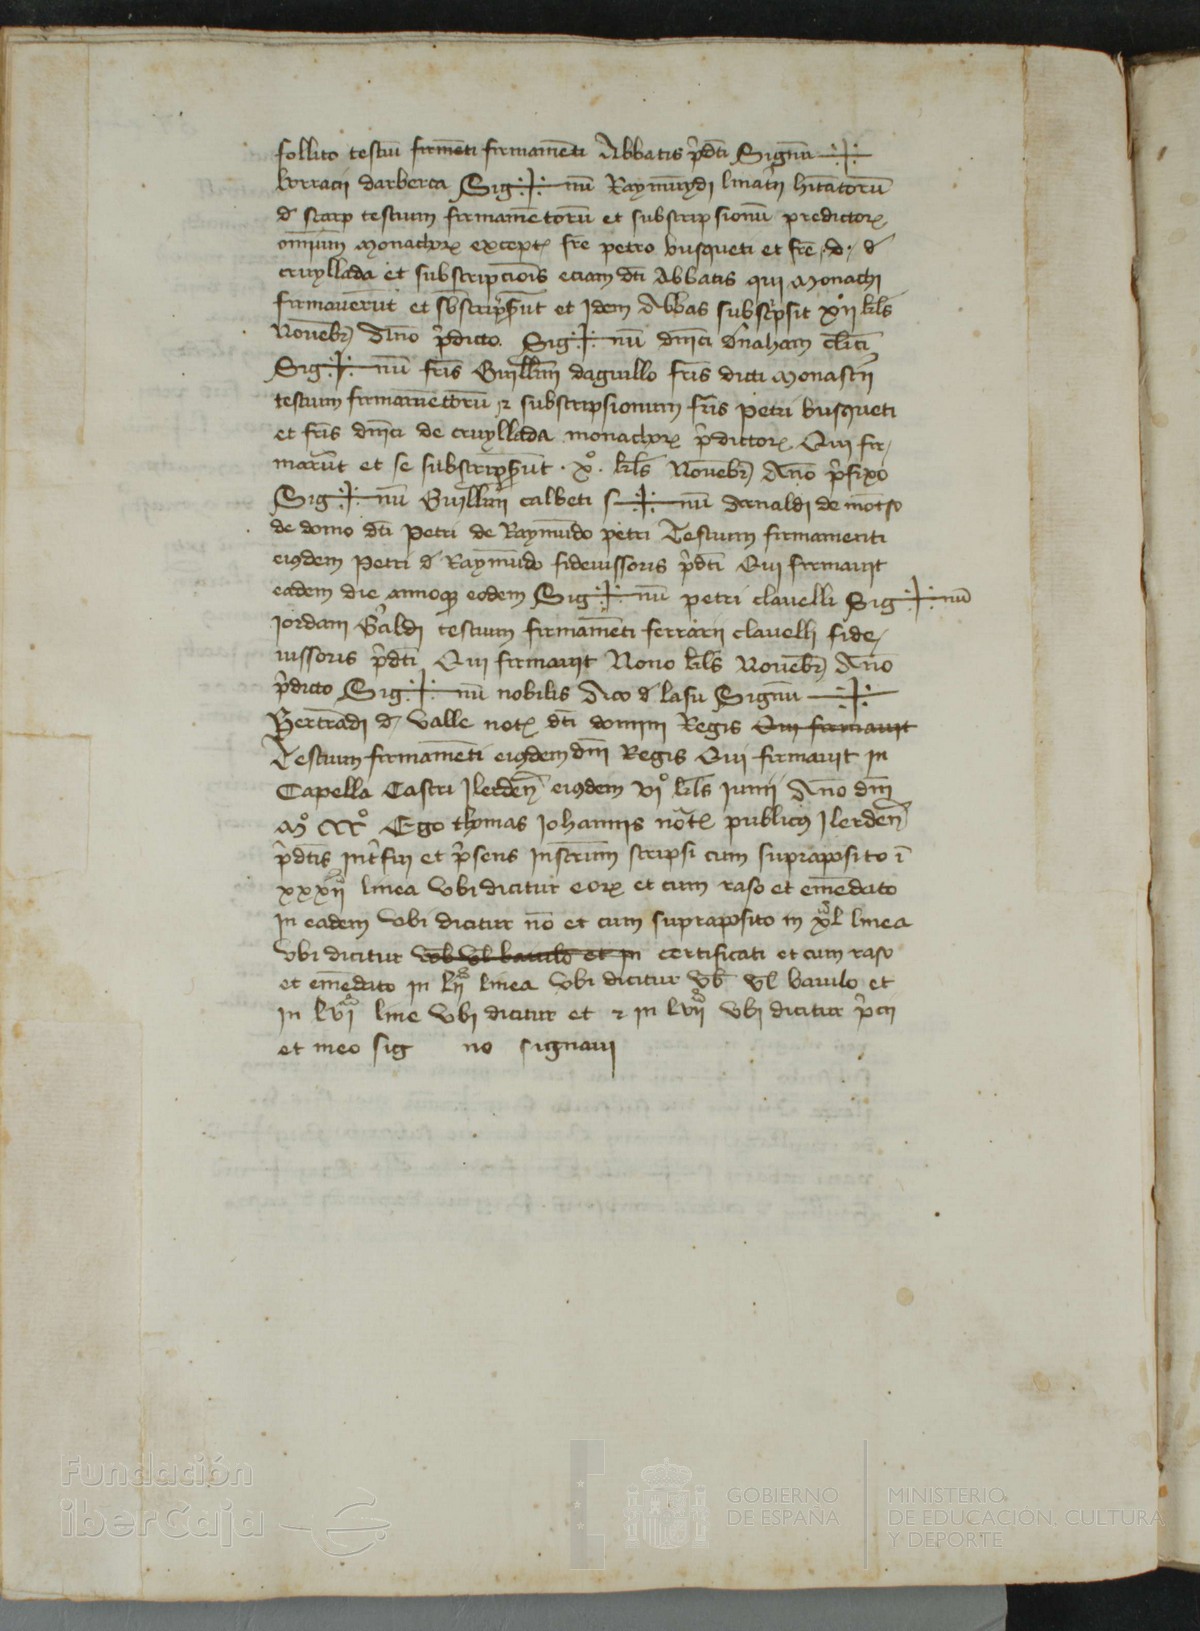 follito testiū firmēti firmamēti Abbatis p̄dc̄i Signū
borracii darbeca Sig nū Raymūdi lmat̄ii hītatorū
d' scarp testium firmamētorū et subscripsionū predictorꝝ
om̄ium monachorꝝ exceptꝭ fr̄e petro busqueti et fr̄e .d. d'
cruyllada et subscripcioīs eciam dc̄i Abbatis qui monachi
firmauerūt et sb̄scripserūt et Idem Abbas subsc̄psit xºii kl̄s
Nouēbrꝭ Ān̄o p̄dicto. Sig nū dn̄ici d'naham cl̄ici
Sig nū fr̄is Guill̄mi daguillo fr̄is dicti monast̄ii
testium firmamētorū ⁊ subscripsionum fr̄is petri busqueti
et fr̄is dn̄ici de cruyllada monachorꝝ p̄dictorꝝ Qui fir-
marūt et se subscripserūt . xº. kl̄s Nouēbrꝭ Ān̄o p̄fixo
Sig nū Guill̄mi calbeti s nū Arnaldi de mōtso
de domo dc̄i Petri de Raymūdo petri Testium firmamenti
eiusdem Petri d' Raymūdo fideiussoris p̄dc̄i Qui firmauit
eadem die annoqꝫ eodem Sig nū petri clauelli Sig nū
Iordani G'aldi testium firmamēti ferrarii clauelli fide-
iussoris p̄dc̄i Qui firmauit Nono kl̄s Nouēbrꝭ Ān̄o
p̄dicto Sig nū nobilis Aco d' lafu Signū
Bertrādi d' valle notꝭ dc̄i domini Regis Qui firmauit
Testium firmamēti eiusdem dn̄i Regis Qui firmauit in
Capella Castri Ilerdeñ eiusdem viº kl̄s Iunii Ān̄o dn̄i
Mº CCCº Ego thomas Iohannis notꝭ publicus Ilerdeñ
p̄dc̄is int̄fui et p̄sens Instrūm scripsi cum supraposito ī
xxxii linea vbi dicitur eorꝝ et cum raso et emēdato
in eadem vbi dicitur nō et cum supraposito in xl linea
vbi dicitur vob̄ vl̄ baiulo et in certificati et cum raso
et emēdato in lii linea vbi dicitur vb̄ vl̄ baiulo et
in lvi line vbi dicitur et ⁊ in lvii vbi dicitur p̄cii
et meo sig no signaui
Fundación
iberCaja
GOBIERNO
DE ESPAÑA
MINISTERIO
DE EDUCACIÓN, CULTURA
Y DEPORTE